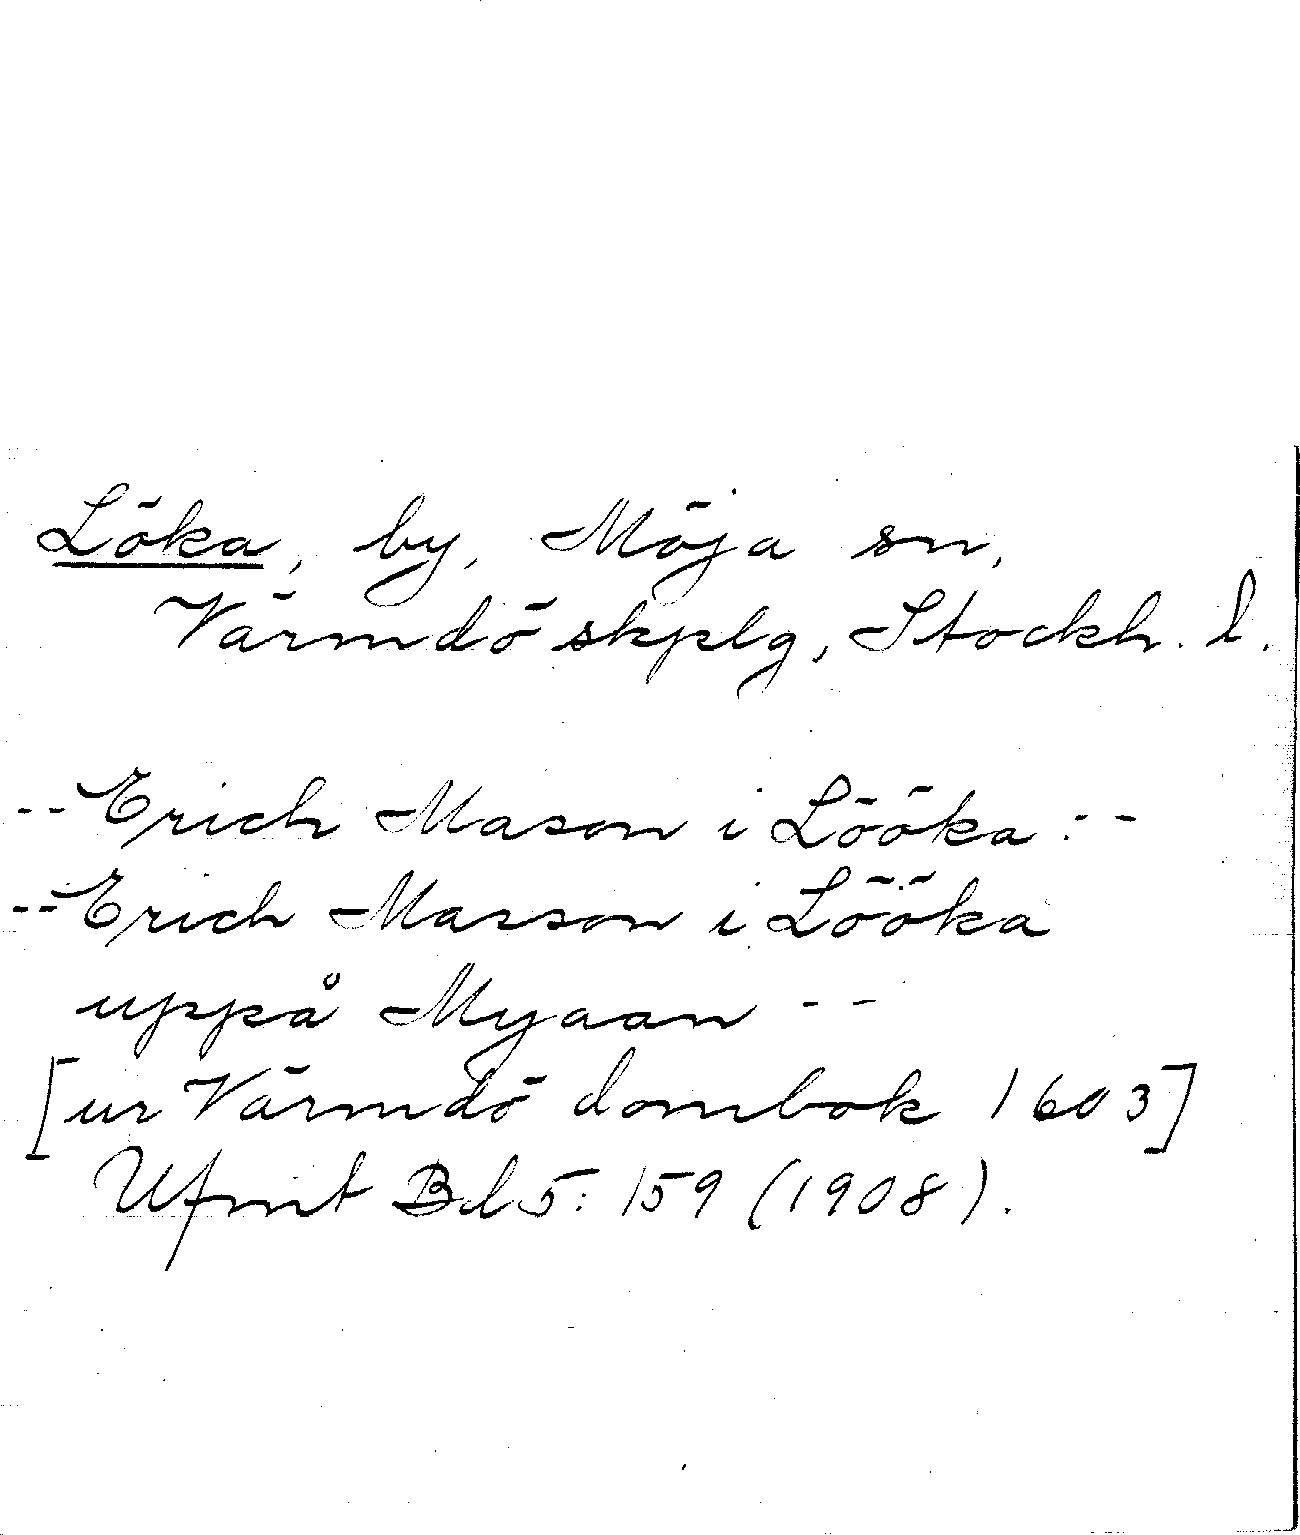 Löka, by, Möja sn,
Värmdö skplg, Stockh. l.
-- Erich Mason i Lööka. --
-- Erich Masson i Lööka
uppå Myaan --
[ur Värmdö dombok 1603]
Ufmt Bd 5: 159 (1908).